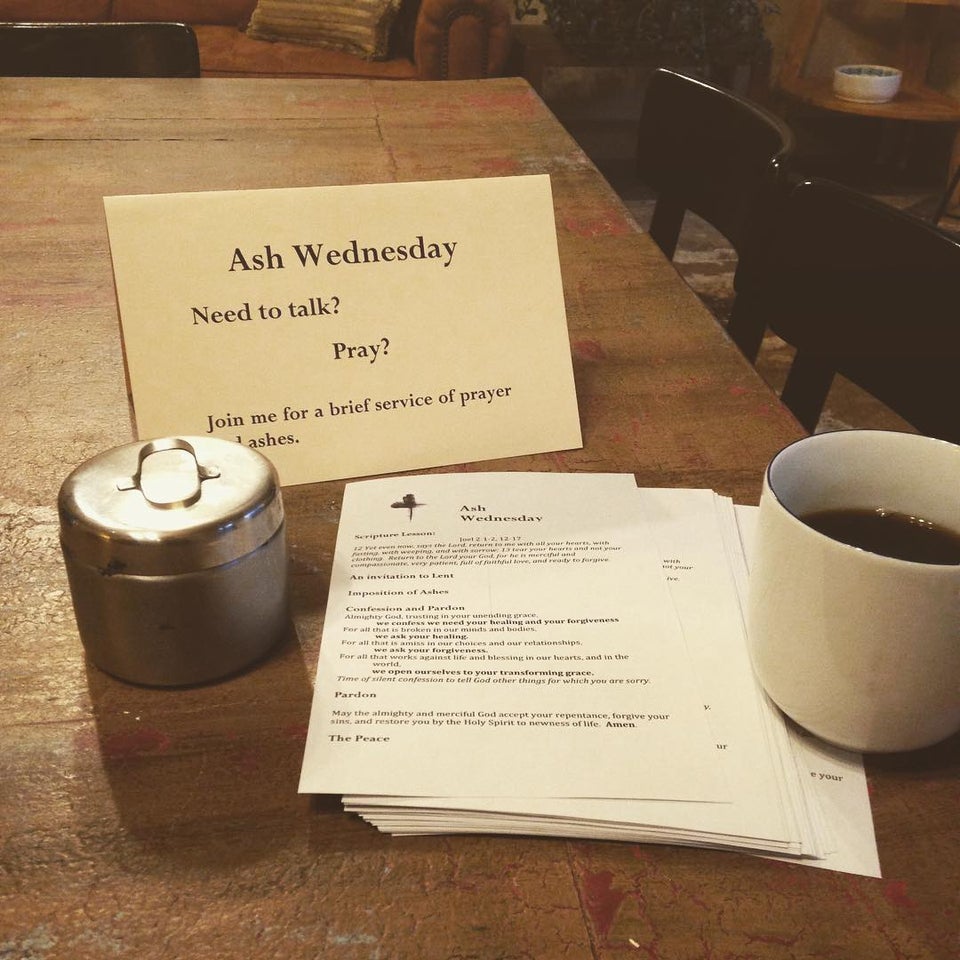 Ash Wednesday
Need to talk?
Pray?
Join me for a brief service of prayer
ashes.
Ash
Wednesday
Scripture Lesson: Joel 2:1-2, 12-17
12 Yet even now, says the Lord, return to me with all your hearts, with
fasting, with weeping, and with sorrow; 13 tear your hearts and not your
clothing. Return to the Lord your God, for he is merciful and
compassionate, very patient, full of faithful love, and ready to forgive.
An invitation to Lent
Imposition of Ashes
Confession and Pardon
Almighty God, trusting in your unending grace,
we confess we need your healing and your forgiveness
For all that is broken in our minds and bodies,
we ask your healing.
For all that is amiss in our choices and our relationships,
we ask your forgiveness.
For all that works against life and blessing in our hearts, and in the
world,
we open ourselves to your transforming grace.
Time of silent confession to tell God other things for which you are sorry.
Pardon
May the almighty and merciful God accept your repentance, forgive your
sins, and restore you by the Holy Spirit to newness of life. Amen.
The Peace
with
not your
ive.
y.
ur
e your